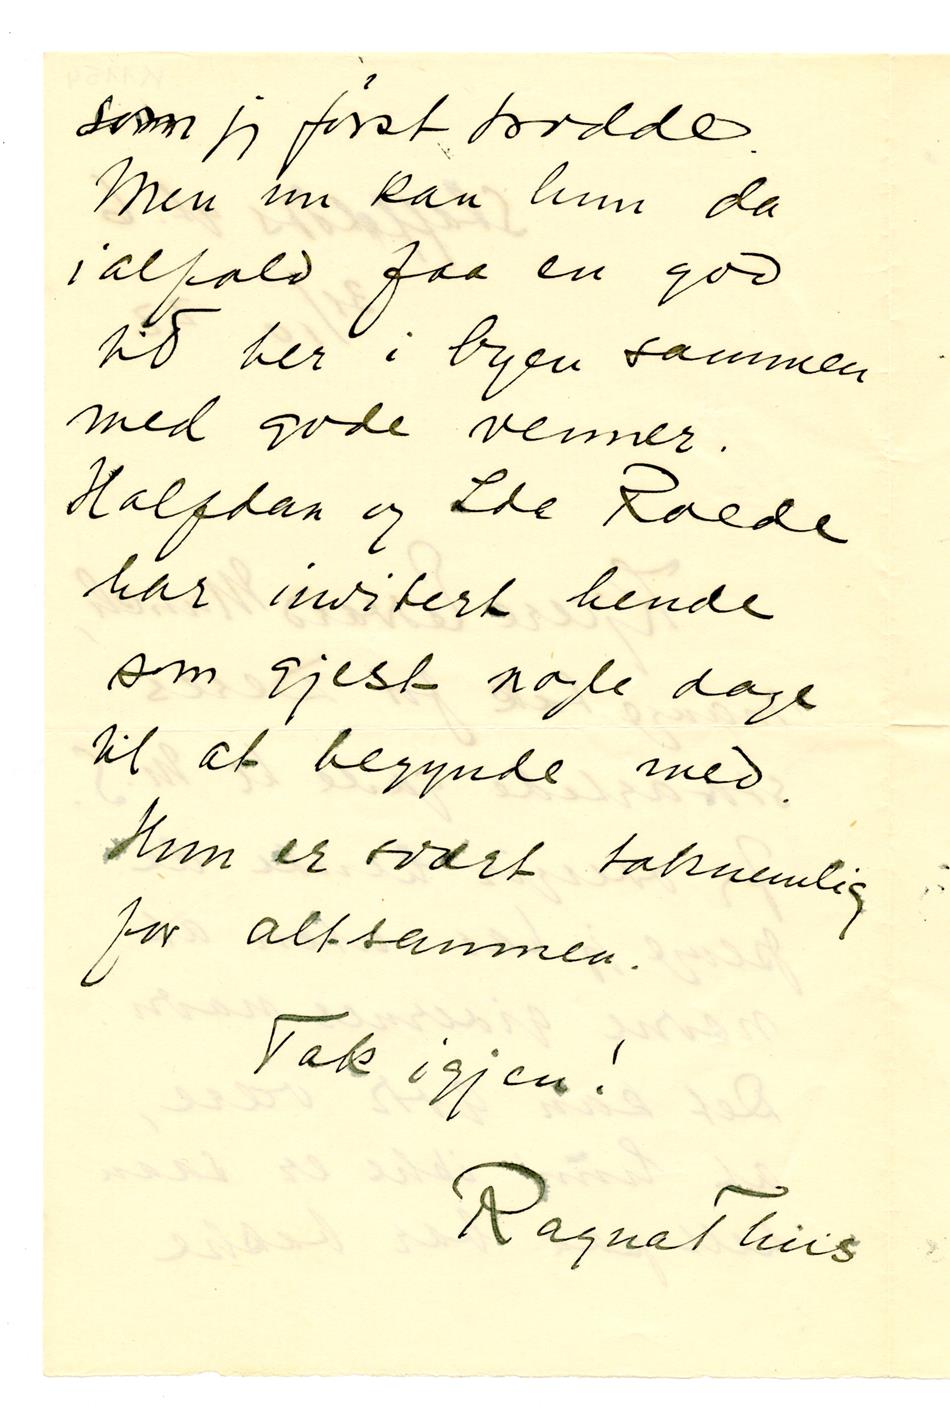 som jeg først trodde.
Men nu kan hun da
ialfald faa en god
tid her i byen sammen
med gode venner.
Halfdan og Ida Roede
har invitert hende
som gjest nogle dage
til at begynde med.
Hun er svært taknemlig
for altsammen.
Tak igjen!
Ragna Thiis